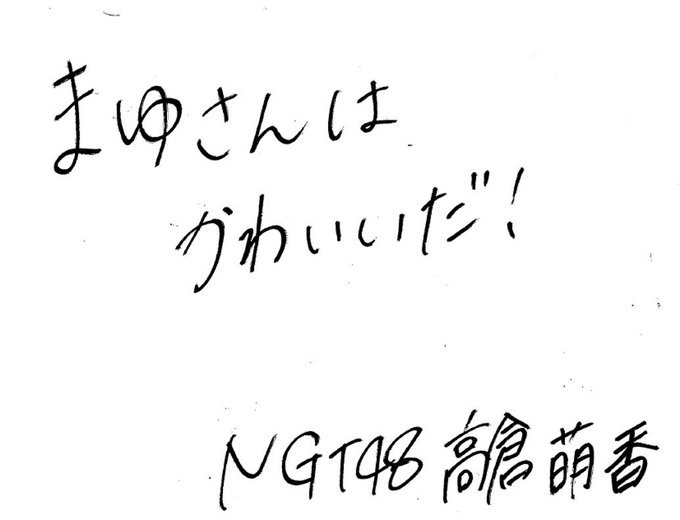 まゆさんは
かわいいだ!
NGT48 高倉萌香